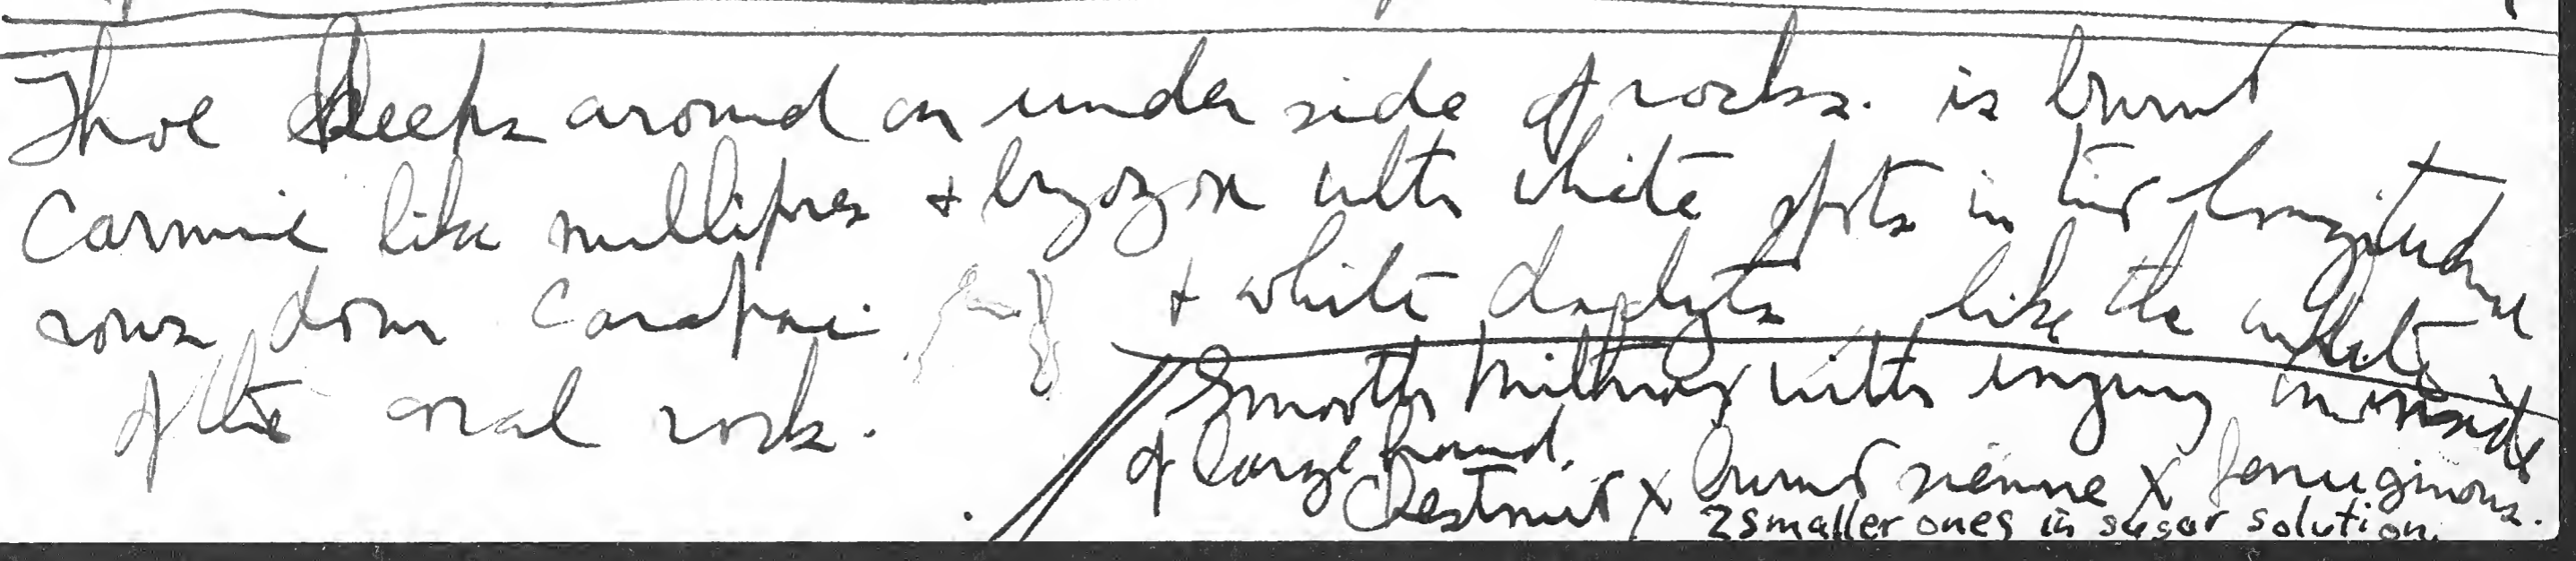 Thoe Keeps around on under side of rocks. is burnt
Carmine like nullipores + bryozoa with white spots in two longitudinal
rows down Carapace + white dactyls like the white
of the coral rock.
Smooth with on inside
of large hand.
Chestnut x burnt sienne x ferruginous.
2 smaller ones in sugar solution.